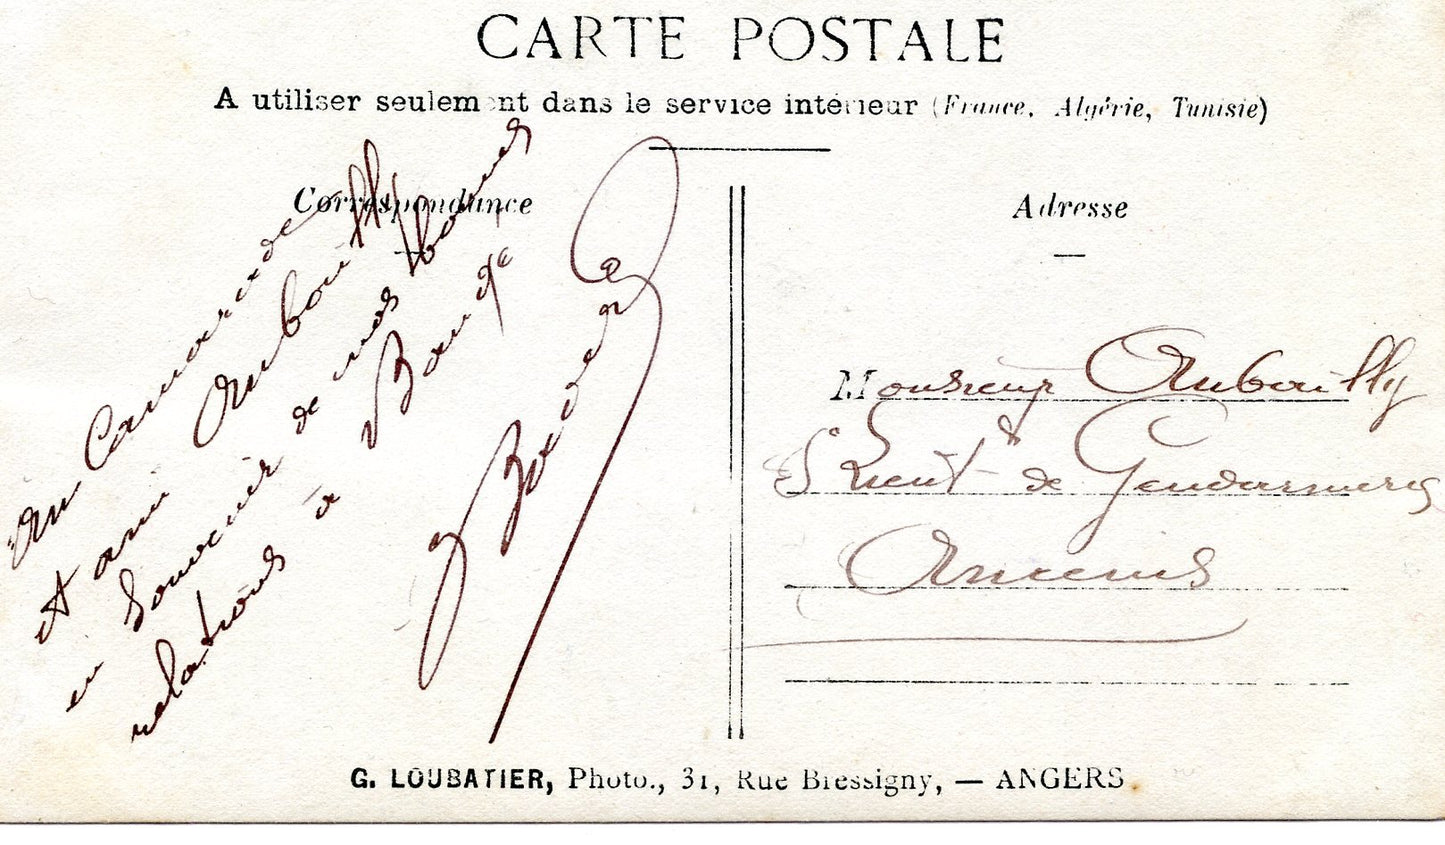 CARTE POSTALE
A utiliser seulement dans le service intérieur (France, Algérie, Tunisie)
Correspondance
Au Camarade
et ami Aubouilly
en Souvenir de nos bonnes
relations à Baugé
Adresse
Monsieur Aubouilly
S/Lieut de Gendarmerie
Ancenis
G. LOUBATIER, Photo., 31, Rue Bressigny, — ANGERS